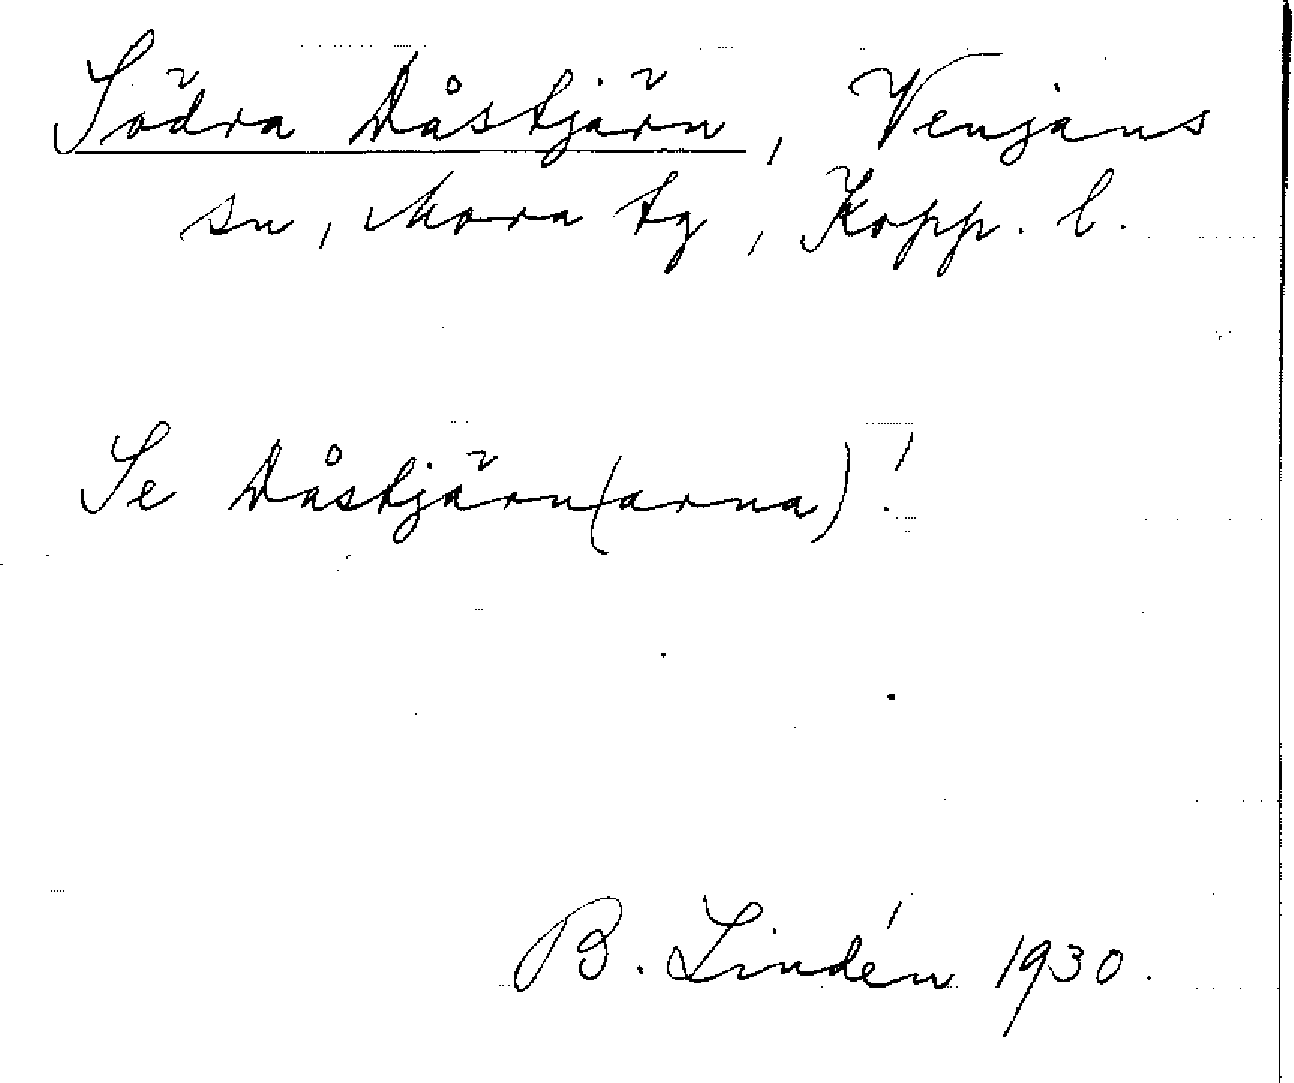 Södra Dåstjärn, Venjans
sn, Mora tg, Kopp. l.
Se Dåstjärn(arna)!
B. Lindén 1930.